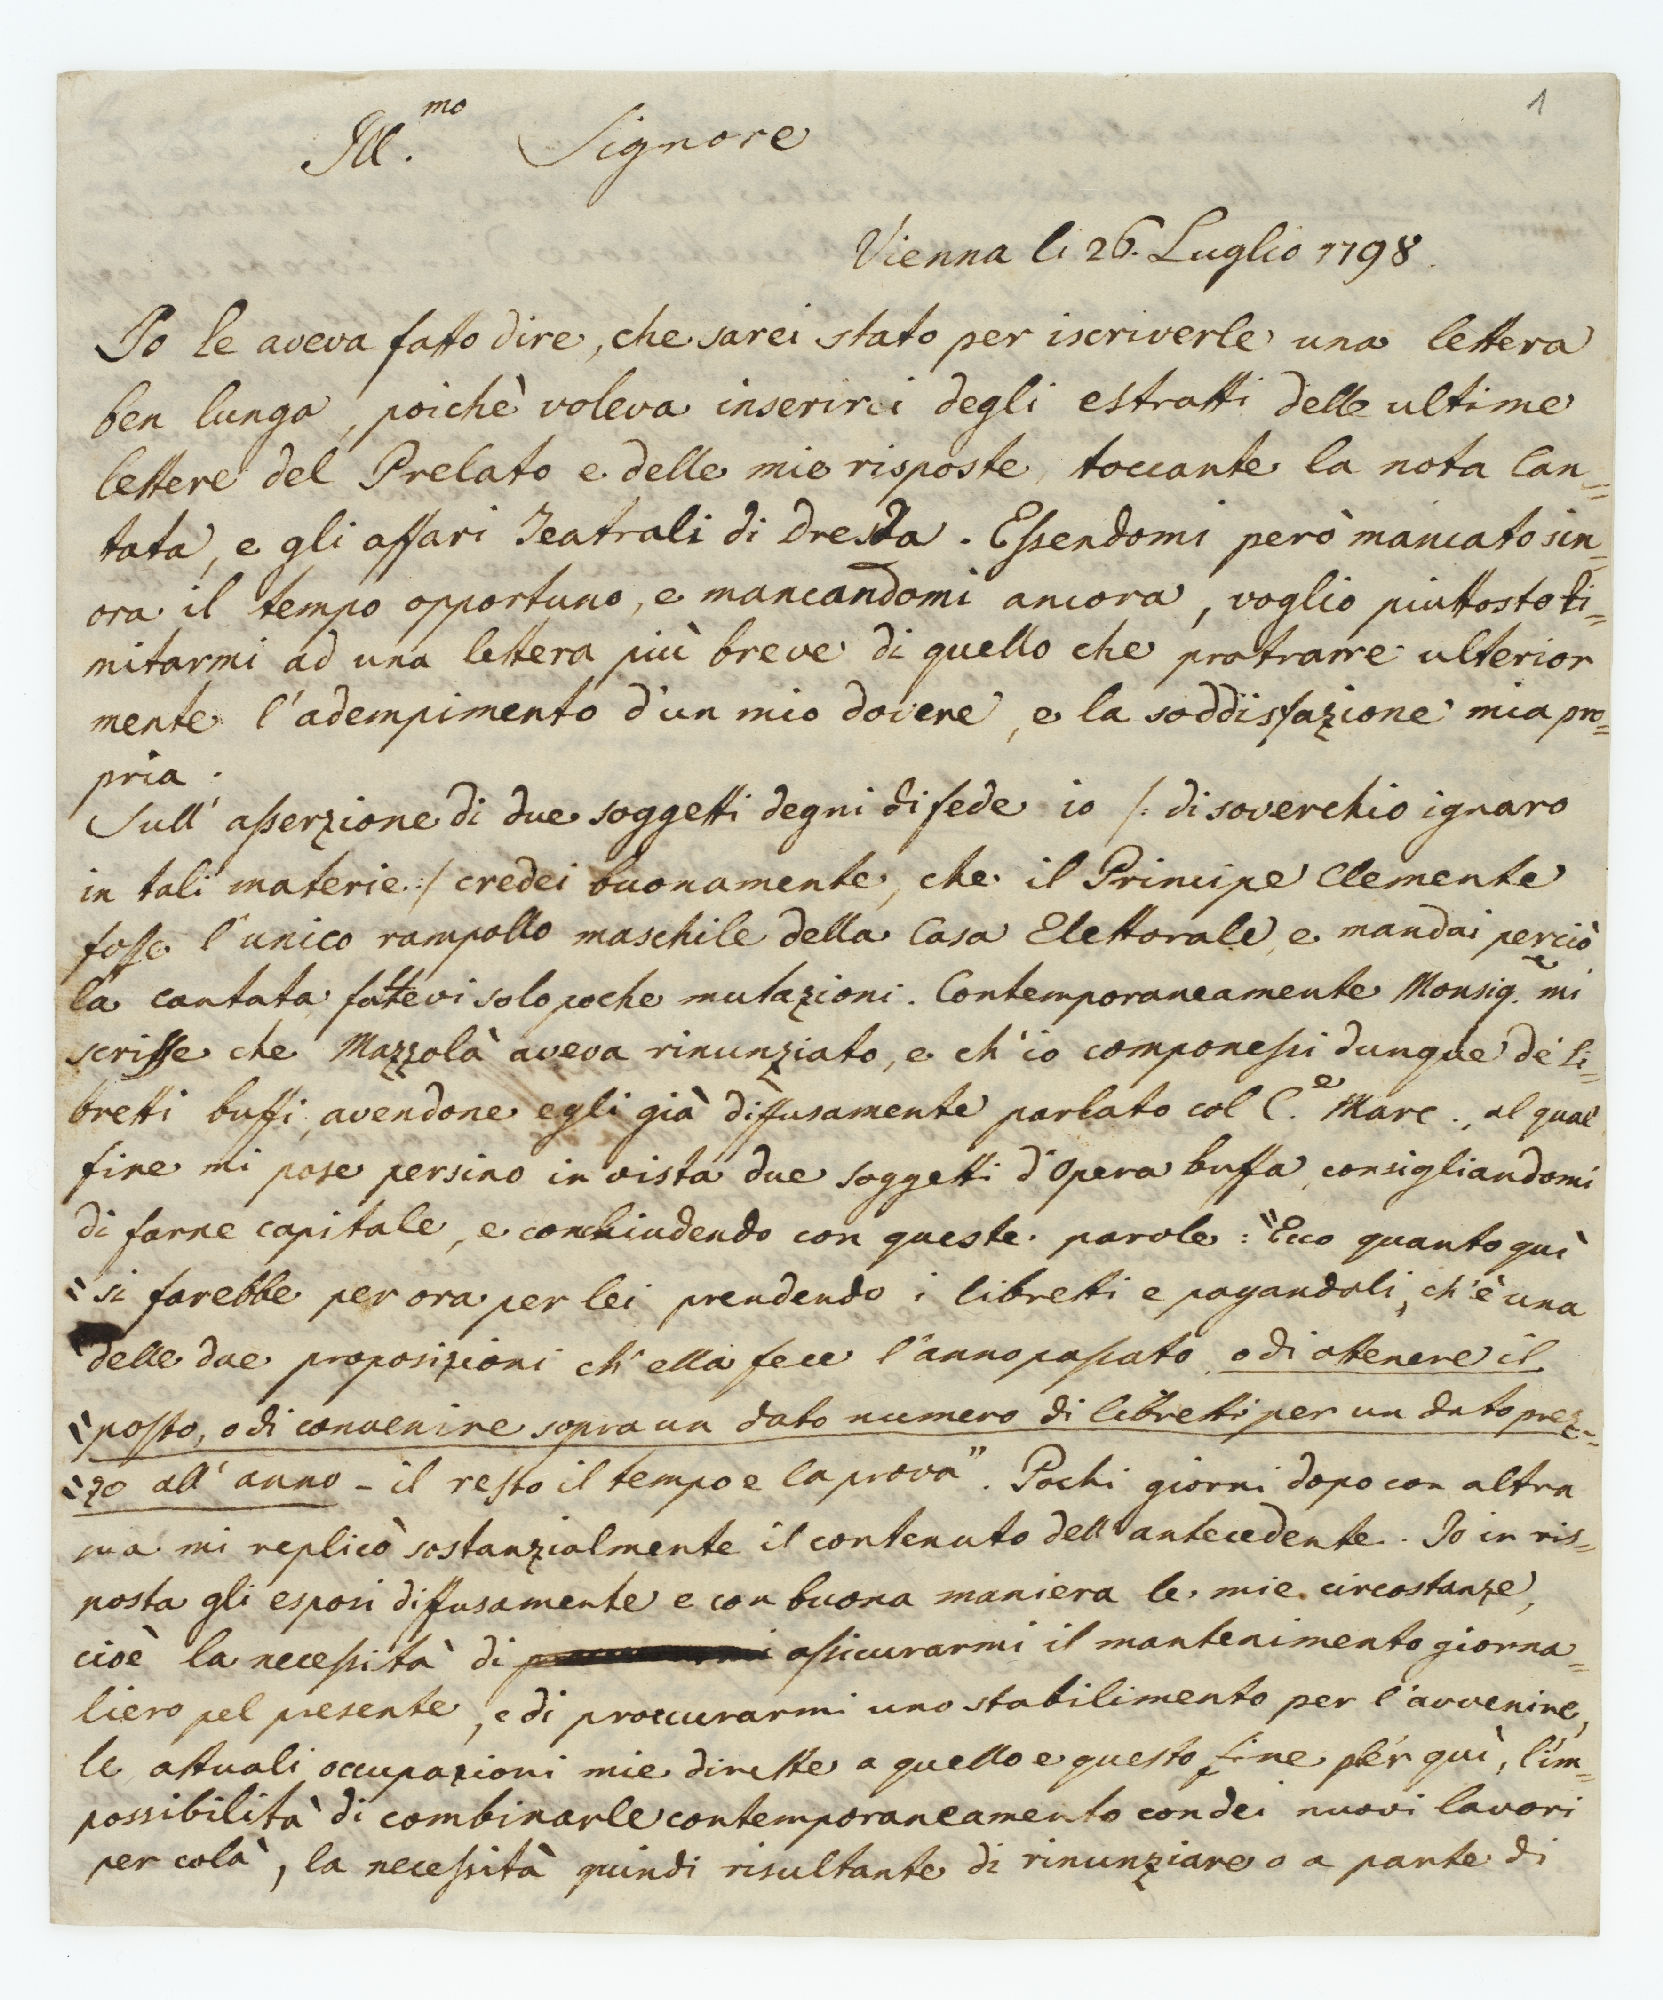 1
Ill.mo Signore
Vienna li 26. Luglio 1798.
Io le aveva fatto dire, che sarei stato per iscriverle una lettera
ben lunga, poichè voleva inserirci degli estratti delle ultime
lettere del Prelato e delle mie risposte, toccante la nota Can=
tata, e gli affari Teatrali di Dresda. Essendomi però mancato sin=
ora il tempo opportuno, e mancandomi ancora, voglio piuttosto li=
mitarmi ad una lettera più breve di quello che protrarre ulterior
mente l'adempimento d'un mio dovere, e la soddisfazione mia pro=
pria.
Sull' asserzione di due soggetti degni di fede io /: di soverchio ignaro
in tali materie :/ credei buonamente, che il Principe Clemente
fosse l'unico rampollo maschile della Casa Elettorale, e mandai perciò
la cantata fattevi solo poche mutazioni. Contemporaneamente Monsig.e mi
scrisse che Mazzolà aveva rinunziato, e ch'io componessi dunque de' li=
bretti buffi, avendone egli già diffusamente parlato col C.e Marc., al qual
fine mi pose persino in vista due soggetti d'Opera buffa, consigliandomi
di farne capitale, e conchiudendo con queste parole: "Ecco quanto quì
"si farebbe per ora per lei prendendo i libretti e pagandoli, ch'è una
"delle due proposizioni ch'ella fece l'anno passato o di ottenere il
"posto, o di convenire sopra un dato numero di libretti per un dato prez=
"zo all'anno - il resto il tempo e la prova". Pochi giorni dopo con altra
sua mi replicò sostanzialmente il contenuto dell'antecedente. Io in ris=
posta gli esposi diffusamente e con buona maniera le mie circostanze,
cioè la necessità di assicurarmi il mantenimento giorna=
liero pel presente, e di proccurarmi uno stabilimento per l'avvenire,
le attuali occupazioni mie dirette a quello e questo fine per quì, l'im=
possibilità di combinarle contemporaneamento con dei nuovi lavori
per colà, la necessità quindi risultante di rinunziare o a parte di